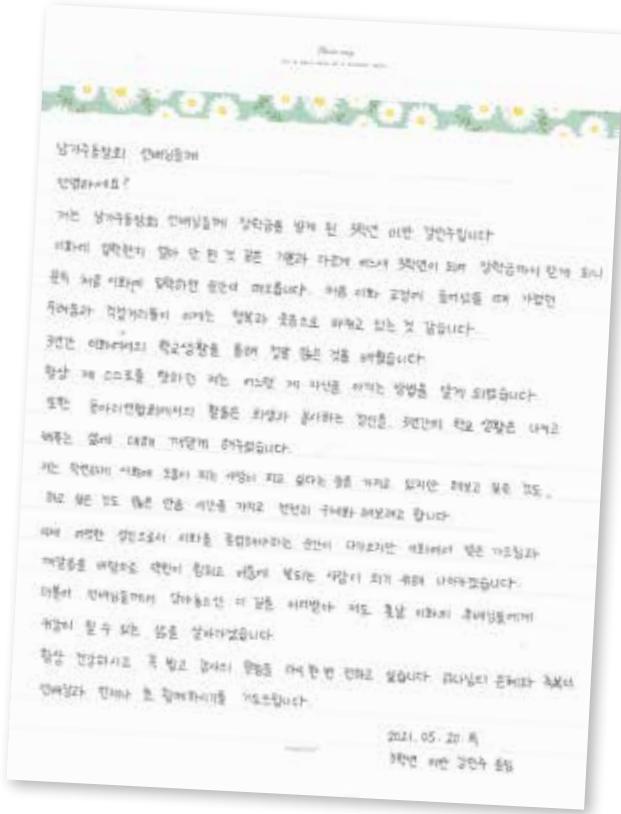 남가주동창회 선배님들께
안녕하세요?
저는 남가주동창회 선배님들께 장학금을 받게 된 3학년 이반 김민수입니다
이화에 입학한지 얼마 안 된 것 같은 기분과 다르게 어느새 3학년이 되어 장학금까지 받게 되니
문득 처음 이화에 입학하던 순간이 떠오릅니다. 처음 이화 교정에 들어섰을 때 가졌던
두려움과 걱정거리들이 이제는 행복과 웃음으로 바뀌고 있는 것 같습니다.
3년간 이화에서의 학교생활을 통해 정말 많은 것을 배웠습니다
항상 제 스스로를 탓하던 저는 어느덧 제 자신을 아끼는 방법을 알게 되었습니다
또한 동아리연합회에서의 활동은 희생과 봉사하는 정신을, 3년간의 학교 생활은 나누고
베푸는 삶에 대해 깨닫게 해주었습니다.
저는 막연하게 사회에 도움이 되는 사람이 되고 싶다는 꿈을 가지고 있지만 해보고 싶은 것도,
하고 싶은 것도 많은 만큼 시간을 가지고 천천히 구체화 해보려고 합니다
이제 어엿한 성인으로서 이화를 졸업해야하는 순간이 다가오지만 이화에서 얻은 가르침과
깨달음을 바탕으로 약한이 힘되고 어둠에 빛되는 사람이 되기 위해 나아가겠습니다.
더불어 선배님들께서 닦아놓으신 이 길을 이어받아 저도 훗날 이화의 후배님들에게
귀감이 될 수 있는 삶을 살아가겠습니다
항상 건강하시고 꼭 뵙고 감사의 말씀을 다시 한 번 전하고 싶습니다 하나님의 은혜와 축복이
선배님과 언제나 늘 함께하시기를 기도드립니다.
2021. 05. 20 목
3학년 이반 김민수 올림